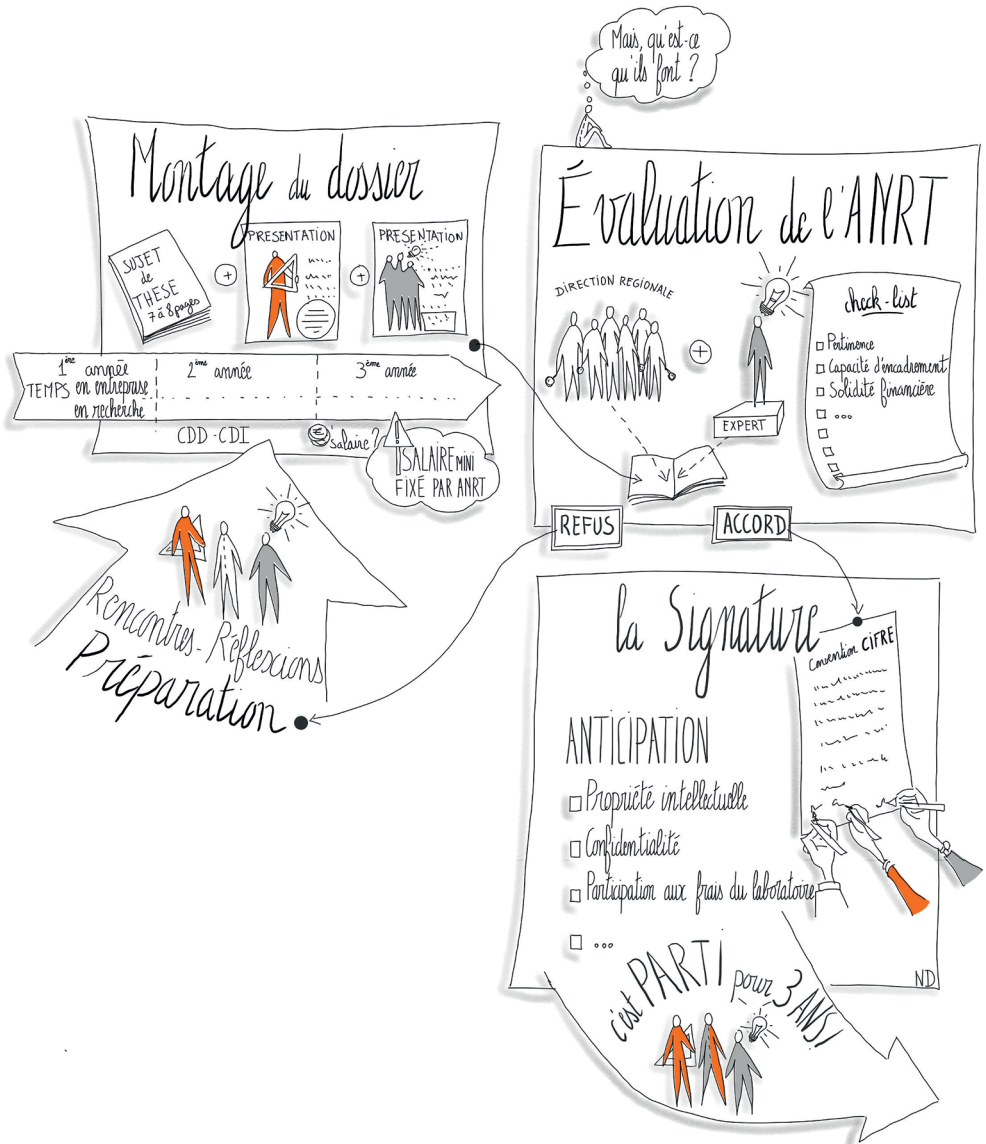 Mais, qu'est-ce
qu'ils font ?
Montage du dossier
SUJET
de
THESE
7 à 8 pages
+
PRESENTATION
+
PRESENTATION
1ère année
2ème année
3ème année
TEMPS en entreprise
en recherche
CDD - CDI
€
salaire ?
!
SALAIRE MINI
FIXÉ PAR ANRT
Rencontres - Réflexions
Préparation
Évaluation de l'ANRT
DIRECTION REGIONALE
+
EXPERT
check-list
Pertinence
Capacité d'encadrement
Solidité financière
...
REFUS
ACCORD
la Signature
Convention CIFRE
ANTICIPATION
Propriété intellectuelle
Confidentialité
Participation aux frais du laboratoire
...
c'est PARTI pour 3 ANS!
ND